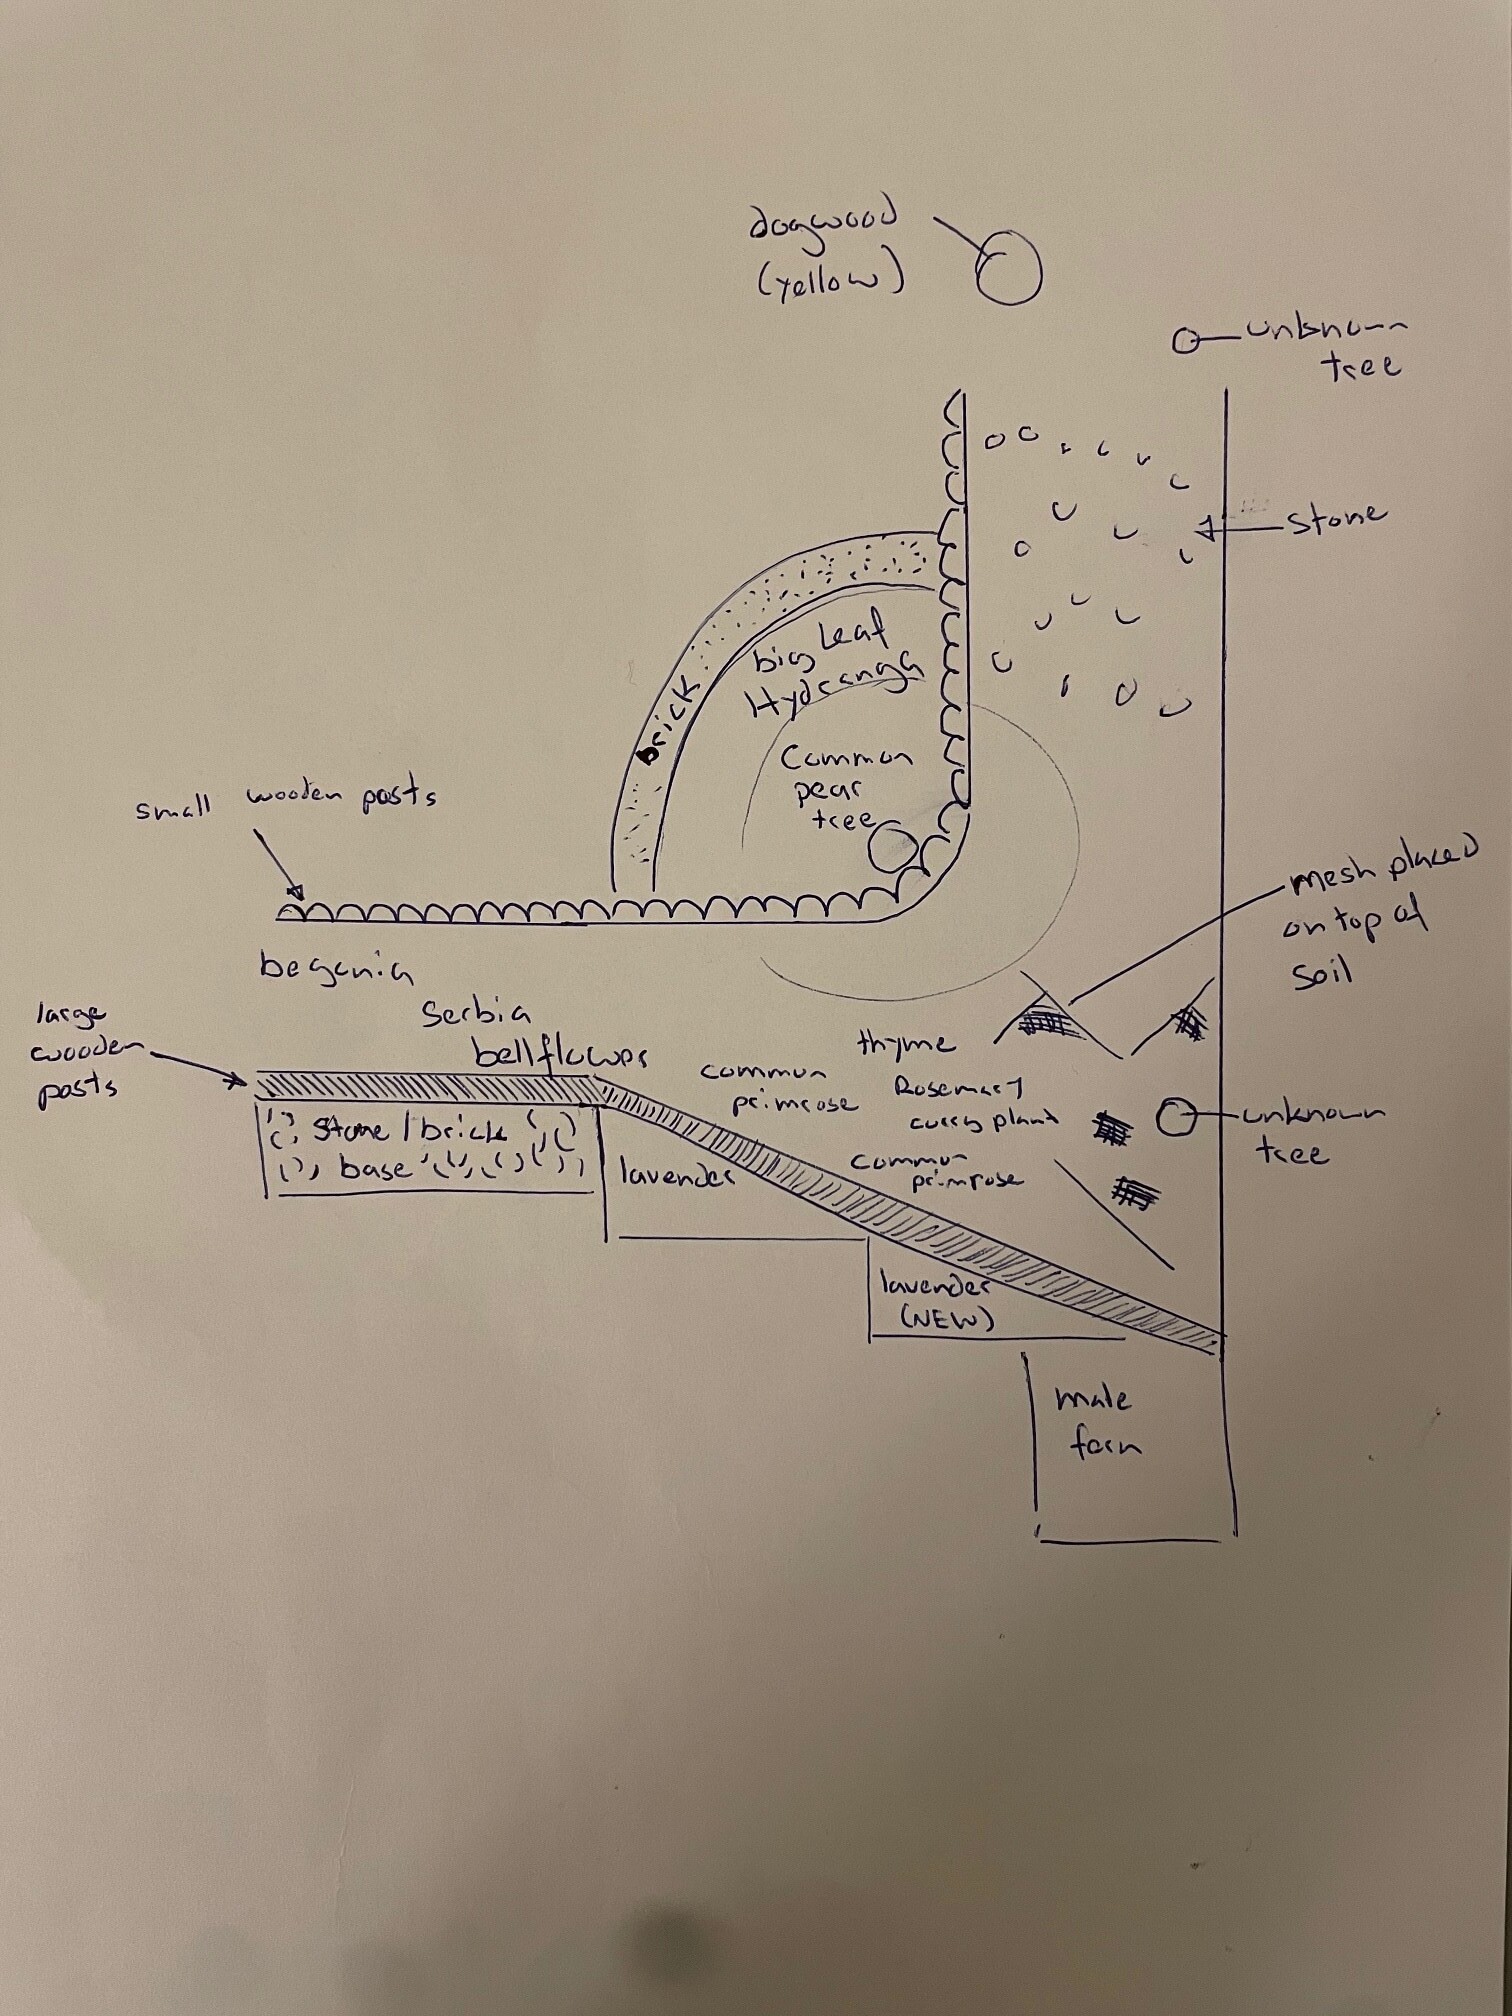 dogwood
(yellow)
unknown
tree
stone
big Leaf
Hydranga
brick
Common
pear
tree
small wooden posts
mesh placed
on top of
soil
begonia
Serbia
bellflower
large
wooden
posts
thyme
common
primrose
Rosemary
curry plant
unknown
tree
stone/brick
base
lavender
common
primrose
lavender
(NEW)
male
fern